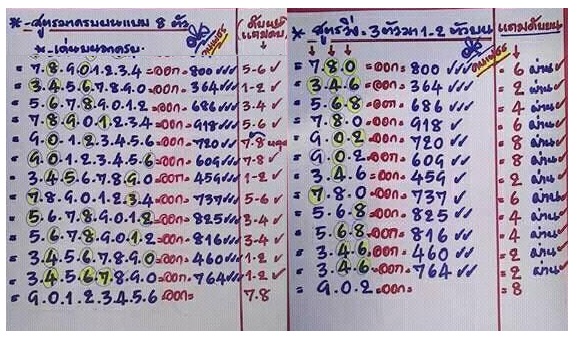 *-สูตรมาครบบนแบบ 8 ตัว
*-เด่นบนมาครบ.
= 7.8.9.0.1.2.3.4 =ออก= 800 ✓✓✓ 5-6 ✓
= 3.4.5.6.7.8.9.0 =ออก= 364 ✓✓✓ 1-2 ✓
= 5.6.7.8.9.0.1.2 =ออก= 686 ✓✓✓ 3-4 ✓
= 7.8.9.0.1.2.3.4 =ออก= 918 ✓✓✓ 5-6 ✓
= 9.0.1.2.3.4.5.6 =ออก= 720 ✓✓✓ 7-8 หลุด
= 9.0.1.2.3.4.5.6 =ออก= 609 ✓✓✓ 7-8 ✓
= 3.4.5.6.7.8.9.0 =ออก= 459 ✓✓✓ 1-2 ✓
= 7.8.9.0.1.2.3.4 =ออก= 737 ✓✓✓ 5-6 ✓
= 5.6.7.8.9.0.1.2 =ออก= 825 ✓✓✓ 3-4 ✓
= 5.6.7.8.9.0.1.2 =ออก= 816 ✓✓✓ 3-4 ✓
= 3.4.5.6.7.8.9.0 =ออก= 460 ✓✓✓ 1-2 ✓
= 3.4.5.6.7.8.9.0 =ออก= 764 ✓✓✓ 1-2 ✓
= 9.0.1.2.3.4.5.6 =ออก= 7.8
*-สูตรวิ่ง = 3 ตัวมา 1-2 ตัวบน แถมดับบน
= 7.8.0 =ออก= 800 ✓✓✓ = 6 ผ่าน ✓
= 3.4.6 =ออก= 364 ✓✓ = 2 ผ่าน ✓
= 5.6.8 =ออก= 686 ✓✓✓ = 4 ผ่าน ✓
= 7.8.0 =ออก= 918 ✓ = 6 ผ่าน ✓
= 9.0.2 =ออก= 720 ✓✓ = 8 ผ่าน ✓
= 9.0.2 =ออก= 609 ✓✓ = 8 ผ่าน ✓
= 3.4.6 =ออก= 459 ✓ = 2 ผ่าน ✓
= 7.8.0 =ออก= 737 ✓ = 6 ผ่าน ✓
= 5.6.8 =ออก= 825 ✓✓ = 4 ผ่าน ✓
= 5.6.8 =ออก= 816 ✓✓ = 4 ผ่าน ✓
= 3.4.6 =ออก= 460 ✓✓ = 2 ผ่าน ✓
= 3.4.6 =ออก= 764 ✓✓ = 2 ผ่าน ✓
= 9.0.2 =ออก= = 8